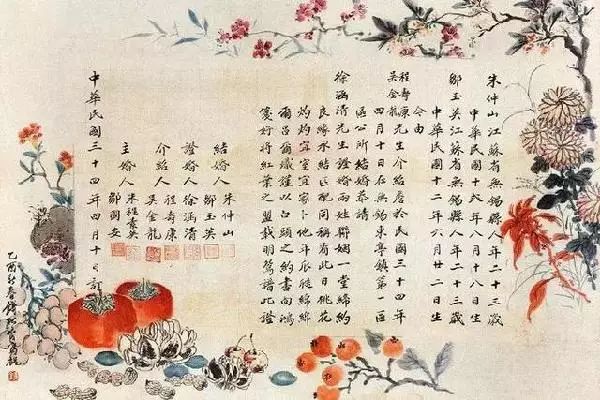 朱仲山江蘇省無錫縣人年二十三歲
中華民國十六年八月十八日生
鄒玉英江蘇省無錫縣人年二十三歲
中華民國十二年六月廿二日生
今由
程壽康
吳金龍
先生介紹詹於民國三十四年
四月十日在無錫東亭鎮第一區
區公所結婚恭請
徐涵清先生證婚兩姓聯姻一堂締約
良緣永結匹配同稱看此日桃花
灼灼宜室宜家卜他年瓜瓞綿綿
爾昌爾熾謹以白頭之約書向鴻
箋好將紅葉之盟載明鴛譜此證
結婚人 朱仲山
鄒玉英
證婚人 徐涵清
介紹人 程壽康
吳金龍
主婚人 朱程
鄒
中華民國三十四年四月十日訂
乙酉新春